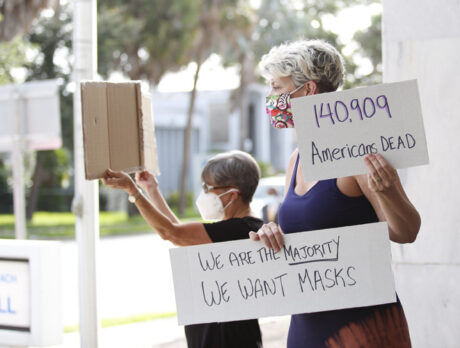 140,909
Americans DEAD
WE ARE THE MAJORITY
WE WANT MASKS